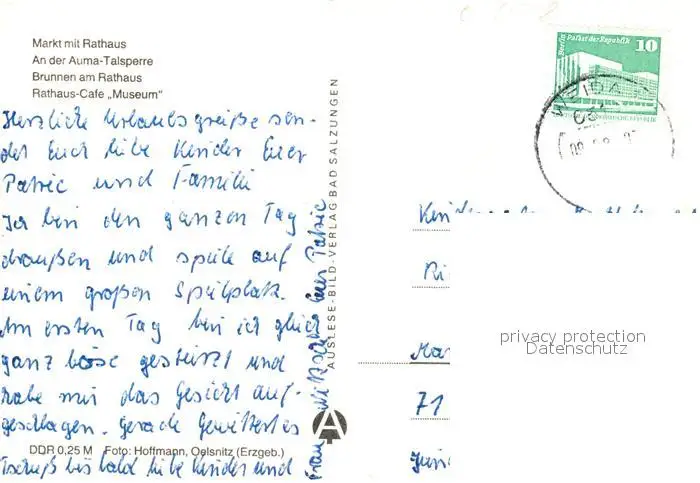 Markt mit Rathaus
An der Auma-Talsperre
Brunnen am Rathaus
Rathaus-Cafe „Museum"
Herzliche Urlaubsgrüße sen-
det Euch liebe Kinder Euer
Patric und Familie
Ich bin den ganzen Tag
draußen und spiele auf
einem großen Spielplatz.
Am ersten Tag bin ich gleich
ganz böse gestürzt und
habe mir das Gesicht auf-
geschlagen. Gerade Gewittert es
DDR 0,25 M Foto: Hoffmann, Oelsnitz (Erzgeb.)
Tschüß bis bald liebe Kinder und
Frau Euer Patric
AUSLESE-BILD-VERLAG BAD SALZUNGEN
A
Berlin Palast der Republik
10
WEIDA
71
privacy protection
Datenschutz